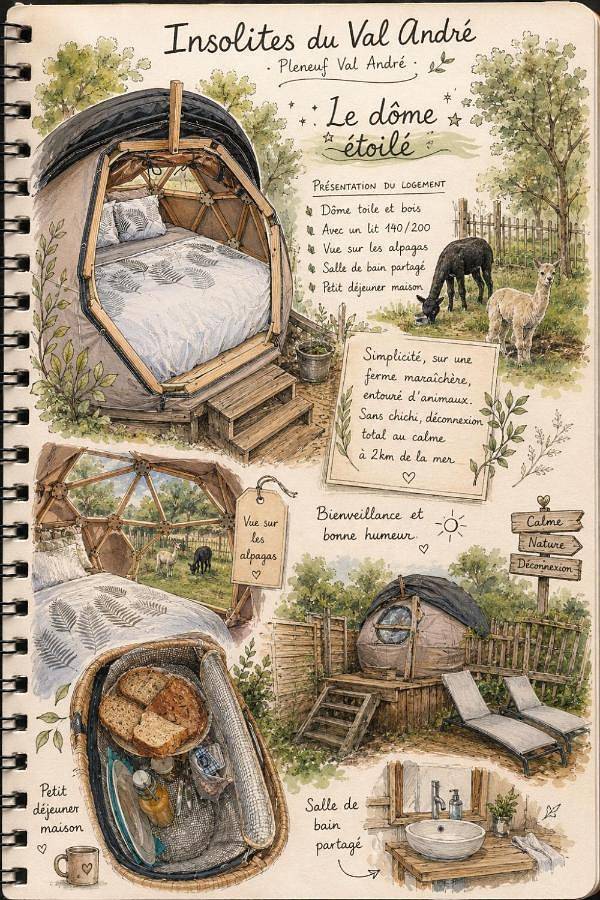 Insolites du Val André
· Pleneuf Val André ·
Le dôme
étoilé
Présentation du logement
Dôme toile et bois
Avec un lit 140/200
Vue sur les alpagas
Salle de bain partagé
Petit déjeuner maison
Simplicité, sur une
ferme maraîchère,
entouré d'animaux.
Sans chichi, déconnexion
total au calme
à 2km de la mer
Vue sur
les
alpagas
Bienveillance et
bonne humeur.
Calme
Nature
Déconnexion
Petit
déjeuner
maison
Salle de
bain
partagé